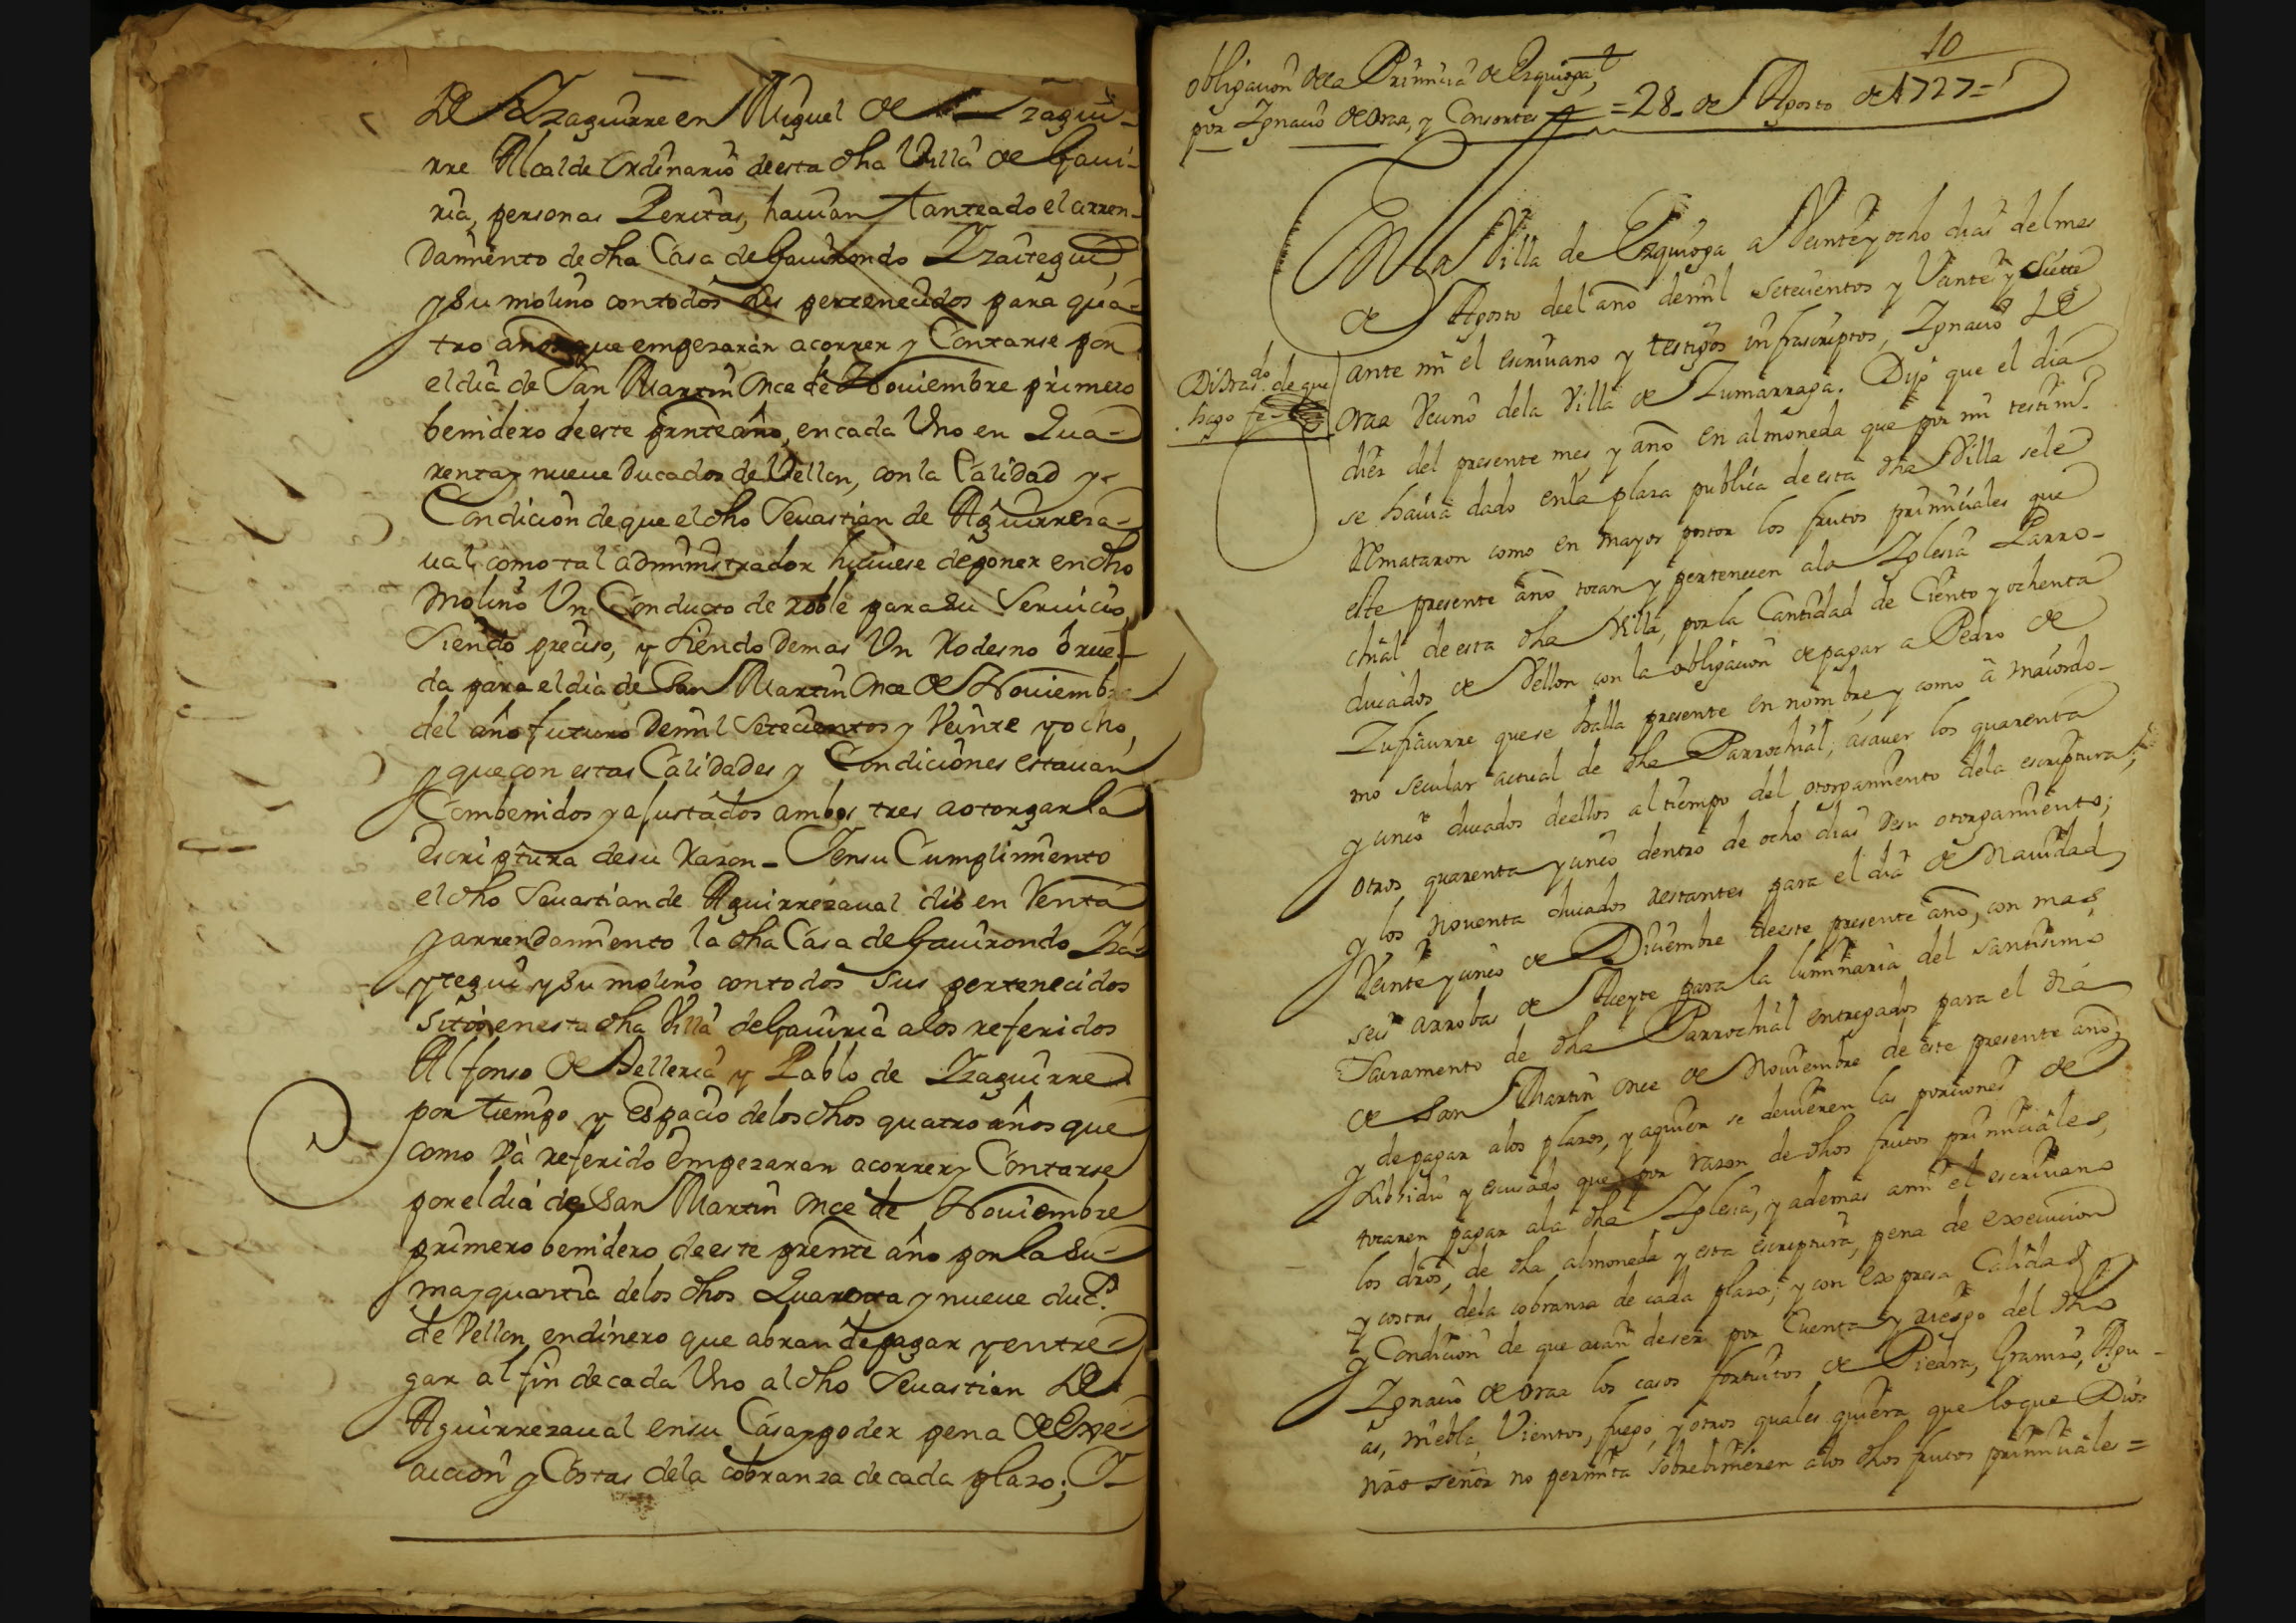 de Yzaguirre en Miguel de Yzagui-
rre Alcalde Ordinario de esta dha Villa de Gavi-
ria, personas Peritas, havian tanteado el arren-
damiento de dha Casa de Gavirondo Yzaitegui
y su molino con todos sus pertenecidos para qua-
tro años que empezarán a correr y Contarse por
el dia de San Martin Once de Noviembre primero
benidero de este prnte año, en cada Uno en Qua-
renta y nueve Ducados de Vellon, con la Calidad y
Condicion de que el dho Sevastian de Aguirreza-
val como tal administrador huviese de poner en dho
molino Un Conducto de roble para su Servicio,
Siendo preciso, y Siendo demas Un Rodesno ò rue-
da para el dia de San Martin Once de Noviembre
del año futuro de mil Setecientos y Veinte y ocho,
y que con estas Calidades y Condiciones estavan
Combenidos y ajustados ambos tres a otorgar la
escriptura de su razon - Y en su Cumplimiento
el dho Sevastian de Aguirrezaval dió en Renta
y arrendamiento la dha Casa de Gavirondo Yza-
ytegui y su molino con todos sus pertenecidos
sitos en esta dha Villa de Gaviria a los referidos
Alfonso de Telleria y Pablo de Yzaguirre
por tiempo y espacio de los dhos quatro años que
como và referido empezaran a correr y Contarse
por el dia de San Martin Once de Noviembre
primero benidero de este prente año por la Su-
ma y quantia de los dhos Quarenta y nueve duc.s
de Vellon en dinero que abran de pagar y entre-
gar al fin de cada Uno al dho Sevastian de
Aguirrezaval en su Casa y poder pena de Exe-
cucion y Costas de la cobranza de cada plazo; Y
10
obligacion de la Primicia de Ezquioga,
por Ygnacio de Oraa, y Consortes = 28 de Agosto de 1727 =
En la Villa de Ezquioga a Veinte y ocho dias del mes
de Agosto de el año de mil setecientos y Veinte y Siette
ante mi el escrivano y testigos infrascriptos, Ygnacio de
Di tras.do de que
hago fe
Oraa Vecino de la Villa de Zumarraga. Dijo que el dia
diez del presente mes y año en almoneda que por mi testim.o
se havia dado en la plaza publica de esta dha Villa se le
Remataron como en mayor postor los frutos primiciales que
este presente año tocan y pertenecen a la Yglesia Parro-
chial de esta dha Villa, por la Cantidad de Ciento y ochenta
ducados de Vellon con la obligacion de pagar a Pedro de
Zufiaurre que se halla presente en nombre y como à maiordo-
mo secular actual de dha Parrochial; asaver los quarenta
y cinco ducados de ellos al tiempo del otorgamiento de la escriptura;
otros quarenta y cinco dentro de ocho dias de su otorgamiento;
y los noventa ducados restantes para el dia de Navidad
Veinte y cinco de Diciembre de este presente año, con mas
seis arrobas de Aceyte para la luminaria del santisimo
Sacramento de dha Parrochial entregados para el dia
de San Martin Once de Noviembre de este presente año;
y de pagar a los plazos, y a quien se devieren las porciones de
Subsidio y escusado que por razon de dhos frutos primiciales,
tocaren pagar a la dha Yglesia, y ademas a mi el escrivano
los dros, de dha almoneda y esta escriptura, pena de execucion
y costas de la cobranza de cada plazo; y con expresa Calidad
y Condicion de que aian de ser por Cuenta y riesgo del dho
Ygnacio de Oraa los casos fortuitos de Piedra, Granizo, Agu-
as, niebla, Vientos, fuego, y otros quales quiera que lo que Dios
nro señor no permita sobrebinieren a los dhos frutos primiciales =